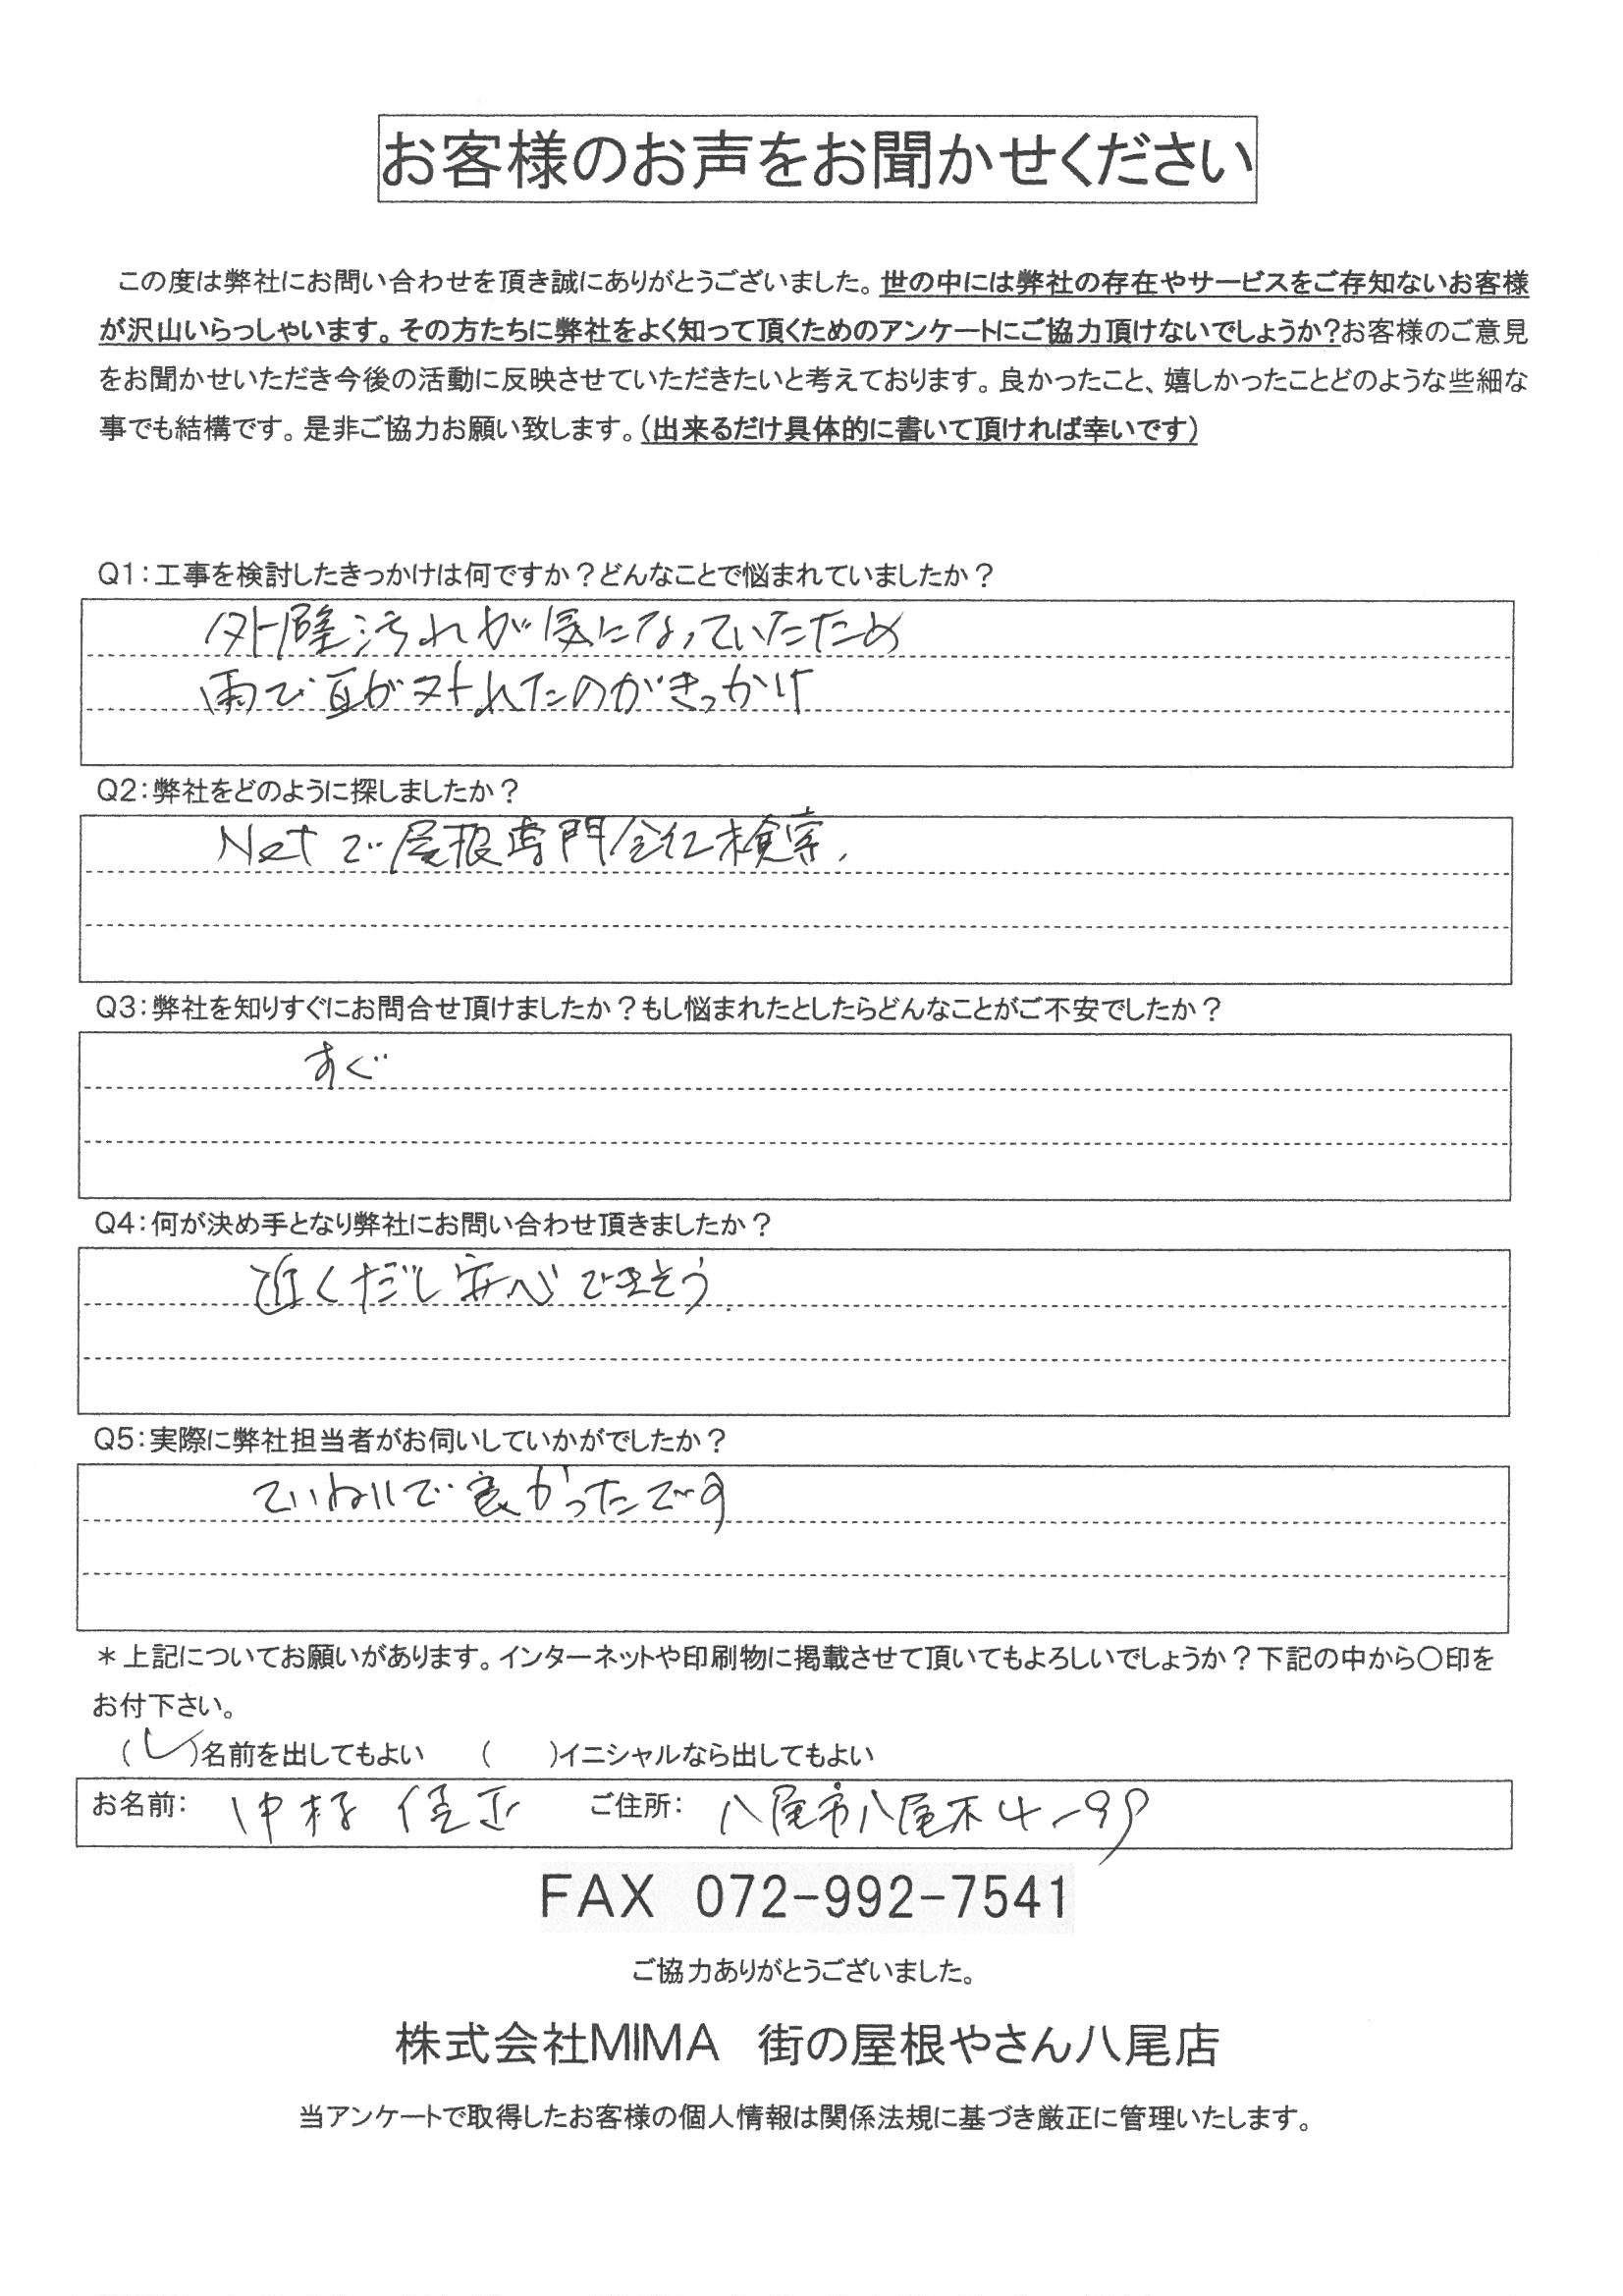 お客様のお声をお聞かせください
この度は弊社にお問い合わせを頂き誠にありがとうございました。世の中には弊社の存在やサービスをご存知ないお客様
が沢山いらっしゃいます。その方たちに弊社をよく知って頂くためのアンケートにご協力頂けないでしょうか?お客様のご意見
をお聞かせいただき今後の活動に反映させていただきたいと考えております。良かったこと、嬉しかったことどのような些細な
事でも結構です。是非ご協力お願い致します。(出来るだけ具体的に書いて頂ければ幸いです)
Q1:工事を検討したきっかけは何ですか?どんなことで悩まれていましたか?
外壁汚れが気になっていたため
雨で瓦が外れたのがきっかけ
Q2:弊社をどのように探しましたか?
Netで屋根専門会社検索.
Q3:弊社を知りすぐにお問合せ頂けましたか?もし悩まれたとしたらどんなことがご不安でしたか?
すぐ
Q4:何が決め手となり弊社にお問い合わせ頂きましたか?
近くだし安心できそう.
Q5:実際に弊社担当者がお伺いしていかがでしたか?
ていねいで良かったです
*上記についてお願いがあります。インターネットや印刷物に掲載させて頂いてもよろしいでしょうか?下記の中から○印を
お付下さい。
(✓)名前を出してもよい ( )イニシャルなら出してもよい
お名前: 仲村 ご住所: 八尾市八尾木4-99
FAX 072-992-7541
ご協力ありがとうございました。
株式会社MIMA 街の屋根やさん八尾店
当アンケートで取得したお客様の個人情報は関係法規に基づき厳正に管理いたします。